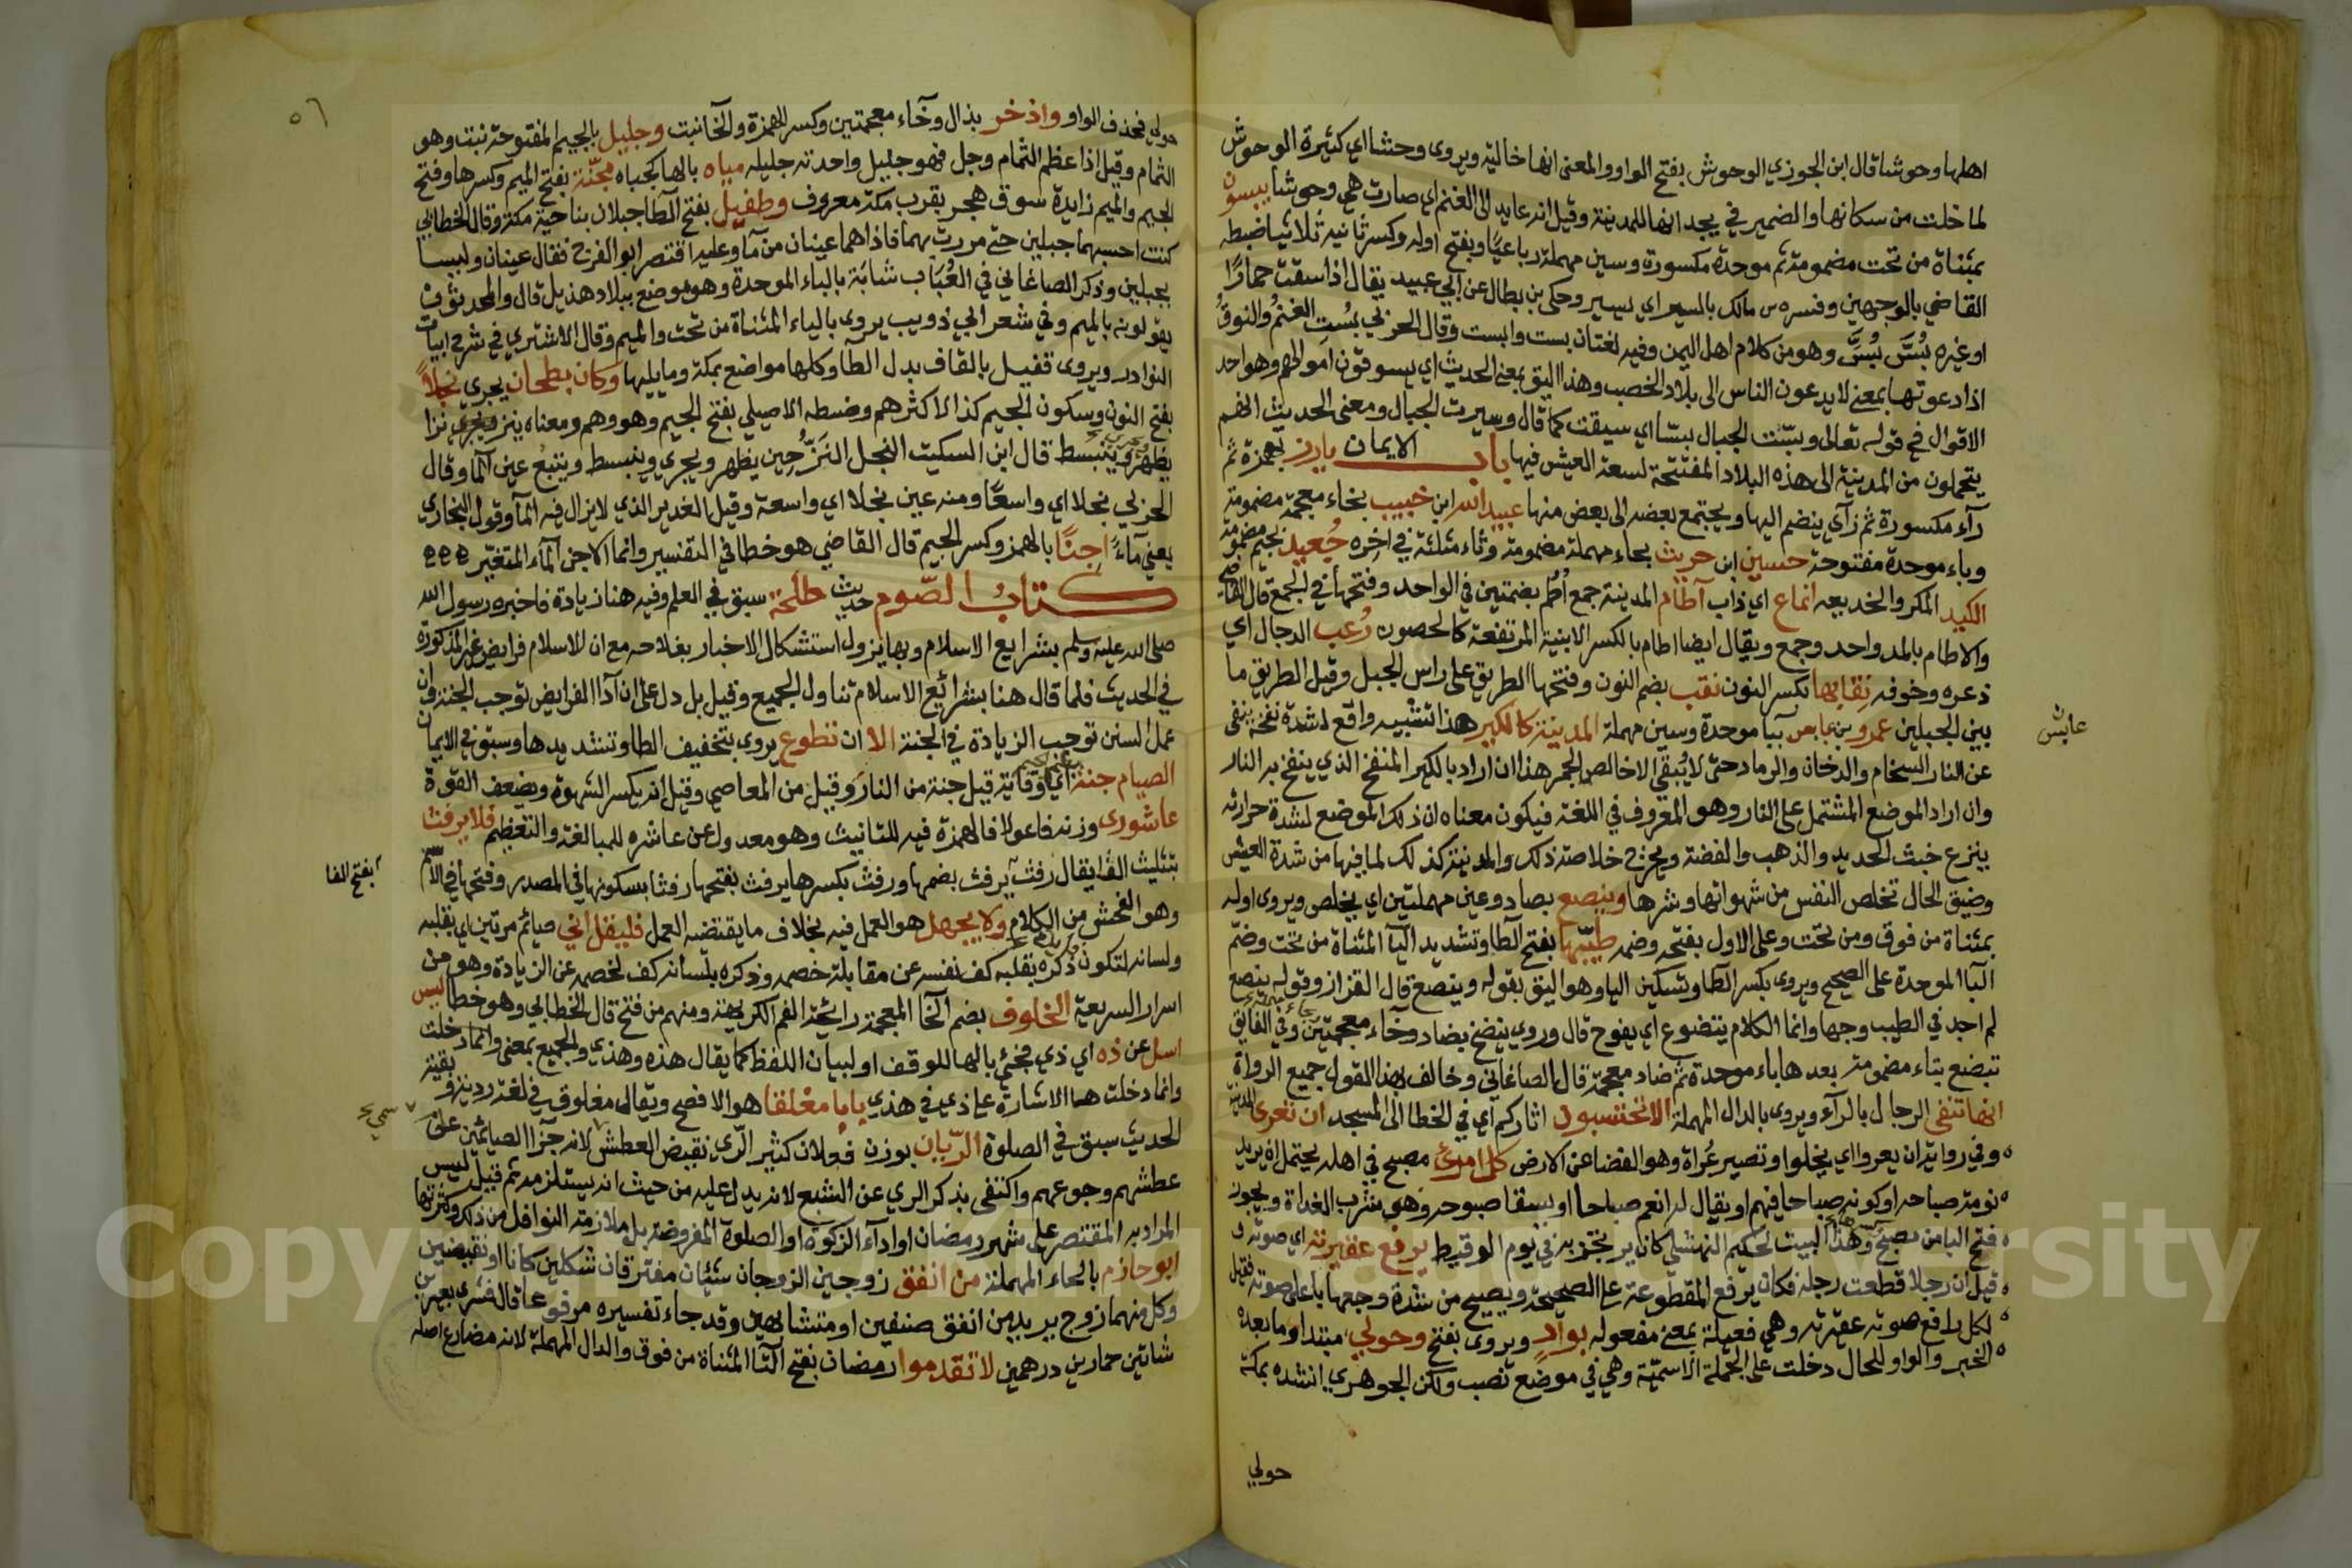 اهلها وحوشا قال ابن الجوزي الوحوش بفتح الواو والمعنى انها خالية ويروى وحشا اي كثيرة الوحوش
لما خلت من سكانها والضمير في يجدانها للمدينة وقيل انه عايد الى الغنم اي صارت هي وحوشا يبسون
بمثناة من تحت مضمومة ثم موحدة مكسورة وسين مهملة رباعيا وبفتح اوله وكسر ثانيه ثلاثيا ضبطه
القاضي بالوجهين وفسره مالك بالسير اي يسير وحكى بن بطال عن ابي عبيد يقال اذا سقت حمارًا
او غيره بُسَّ بُسَّ وهو من كلام اهل اليمن وفيه لغتان بست وابست وقال الحربي بُسَّت الغنمُ والنوقُ
اذا دعوتها بمعنى لا يدعون الناس الى بلاد الخصب وهذا اليق بمعنى الحديث اي يسوقون اموالهم وهو احد
الاقوال في قوله تعالى وبسّت الجبال بسّا اي سيقت كما قال وسيرت الجبال ومعنى الحديث انهم
يتحملون من المدينة الى هذه البلاد المفتتحة لسعة العيش فيها باب الايمان يارز بهمزة ثم
رآء مكسورة ثم زاي ينضم اليها ويجتمع بعضه الى بعض منها عبيد الله ابن خبيب بخاء معجمة مضمومة
وباء موحدة مفتوحة حسين ابن حريث بحاء مهملة مضمومة وثاء مثلثة في اخره جُعيد بجيم مضمومة
الكيد المكر والخديعه انماع اي ذاب آطام المدينة جمع أُطُم بضمتين في الواحد وفتحهما في الجمع قال القاضي
والاطام بالمد واحد وجمع ويقال ايضا اطام بالكسر الابنية المرتفعة كالحصون رُعب الدجال اي
ذعره وخوفه نقابها بكسر النون نقب بضم النون وفتحها الطريق على راس الجبل وقيل الطريق ما
بين الجبلين عمرو بن عباس بباء موحدة وسين مهملة المدينة كالكير هذا تشبيه واقع لشدة نفخه ينفى
عايش
عن النار السخام والدخان والرماد حتى لا يُبقي الا خالص الجمر هذا ان اراد بالكير المنفخ الذي ينفخ به النار
وان اراد الموضع المشتمل على النار وهو المعروف في اللغة فيكون معناه ان ذلك الموضع لشدة حرارته
ينزع خبث الحديد والذهب والفضة ويخرج خلاصة ذلك والمدينة كذلك لما فيها من شدة العيش
وضيق الحال تخلص النفس من شهواتها وشرها وينصع بصاد وعين مهملتين اي يخلص ويروى اوله
بمثناة من فوق ومن تحت وعلى الاول بفتحه وضمه طيّبها بفتح الطا وتشديد اليآ المثناة من تحت وضم
البآ الموحدة على الصحيح ويروى بكسر الطآ وتسكين اليا وهو اليق بقوله وينصع قال القزاز وقوله ينصع
لم اجد في الطيب وجها وانما الكلام يتضوع اي يفوح قال وروي ينضخ بضاد وخآء معجمتين وفي الفايق
تبضع بتاء مضمومة بعدها باء موحدة ثم ضاد معجمة قال الصاغاني وخالف بهذا القول جميع الرواة
انها تنفي الرجال بالرآء ويروى بالدال المهملة الا تحتسبون اثاركم اي في الخطا الى المسجد ان تعرى المدينة
وفي رواية ان يعروا اي يخلوا وتصير عُراة وهو الفضا عن الارض كل امرئ مصبح في اهله يحتمل ان يريد
نومة صباحه او كونه صباحا فيهم او يقال له انعم صباحا او يسقا صبوحه وهو شرب الغداة ويجوز
فتح البا من مصبح وهذا البيت لحكيم النهشلي كان يرتجز به في يوم الوقيط يرفع عقيرته اي صوته و
قيل ان رجلا قطعت رجله فكان يرفع المقطوعة على الصحيحة ويصيح من شدة وجعها باعلى صوته فقيل
لكل رافع صوته عقيرته وهي فعيلة بمعنى مفعوله بوادٍ ويروى بفتح وحولي مبتدا وما بعده
الخبر والواو للحال دخلت على الجملة الاسمية وهي في موضع نصب ولكن الجوهري انشده بمكة
حولي
٥٦
حولي فحذف الواو واذخر بذال وخآء معجمتين وكسر الهمزة والخا نبت وجليل بالجيم المفتوحة نبت وهو
الثمام وقيل اذا عظم الثمام وجل فهو جليل واحدته جليله مياه بالها كجباه مجنّة بفتح الميم وكسرها وفتح
الجيم والميم زايدة سوق هجر بقرب مكة معروف وطفيل بفتح الطآ جبلان بناحية مكة وقال الخطابي
كنت احسبهما جبلين حتى مررت بهما فاذا هما عينان من مآ وعليه اقتصر ابو الفرج فقال عينان وليسا
بجبلين وذكر الصاغاني في العُبَاب شابَة بالباء الموحدة وهو موضع ببلاد هذيل قال والمحدثون
يقولونه بالميم وفي شعر ابي ذويب يروى بالياء المثناة من تحت والميم وقال الاشتري في شرح ابيات
النوادر ويروى قفيل بالقاف بدل الطآ وكلها مواضع بمكة وما يليها وكان بطحان يجري نجلًا
بفتح النون وسكون الجيم كذا لاكثرهم وضبطه الاصيلي بفتح الجيم وهو وهم ومعناه ينز ويجري نزا
يظهر وينبسط قال ابن السكيت النجل النَزّ حين يظهر ويجري وينبسط وينبع عين المآ وقال
الحربي نجلا اي واسعًا ومنه عين نجلا اي واسعة وقيل الغدير الذي لا يزال فيه المآ وقول البخاري
يعني مآءً اجنًا بالهمز وكسر الجيم قال القاضي هو خطا في التفسير وانما الاجن المآء المتغيّر
كتابُ الصّوم حديث طلحة سبق في العلم وفيه هنا زيادة فاخبره رسول الله
صلى الله عليه وسلم بشرايع الاسلام وبها يزول استشكال الاخبار بفلاحه مع ان للاسلام فرايض غير المذكورة
في الحديث فلما قال هنا بشرائع الاسلام تناول الجميع وقيل بل دل على ان آدا الفرايض توجب الجنة وان
عمل السنن توجب الزيادة في الجنة الا ان تطوع يروى بتخفيف الطا وتشديدها وسبق في الايمان
الصيام جنة اي وقاية قيل جنة من النار وقيل من المعاصي وقيل انه يكسر الشهوة ويضعف القوة
عاشورى وزنه فاعولا فالهمزة فيه للتانيث وهو معدول عن عاشره للمبالغة والتعظيم فلا يرفث
بتثليث الفا يقال رفث يرفث بضمها ورفث بكسرها يرفث بفتحها رفثا بسكونها في المصدر وفتحها في الاسم
بفتح الفا
وهو الفحش من الكلام ولا يجهل هو العمل فيه بخلاف ما يقتضه العمل فليقل اني صيائم مرتين اي بقلبه
ولسانه لتكون ذكره بقلبه كف نفسه عن مقابلة خصمه وذكره بلسانه كف لخصمه عن الزيادة وهو من
اسرار الشريعة الخلوف بضم الخآ المعجمة رائحة الفم الكريهة ومنهم من فتح قال الخطابي وهو خطا ليس
اسل عن ذه اي ذي فجئ بالها للوقف او لبيان اللفظ كما يقال هذه وهذي والجميع بمعنى وانما دخلت
وانما دخلت ها الاشارة على ذي في هذي بابا مغلقا هو الافصح ويقال مغلوق في لغة رديئة وبقية
الحديث سبق في الصلوة الريّان بوزن فعلان كثير الرّي نقيض العطش لانه جزآ الصيائمين على
عطشهم وجوعهم واكتفى بذكر الري عن الشبع لانه يدل عليه من حيث انه يستلزمه ثم قيل ليس
المراد به المقتصر على شهر رمضان او اداء الزكوة او الصلوة المفروضة بل ملازمة النوافل من ذلك وكثرتها
ابو حازم بالحاء المهملة من انفق زوجين الزوجان شيئان مفترقان شكلين كانا او نقيضين
وكل منهما زوج يريد من انفق صنفين او متشابهين وقد جاء تفسيره مرفوعا قال فشرى بعيرين
شاتين حمارين درهمين لا تقدموا رمضان بفتح التا المثناة من فوق والدال المهملة لانه مضارع اصله
Copyright © King Saud University